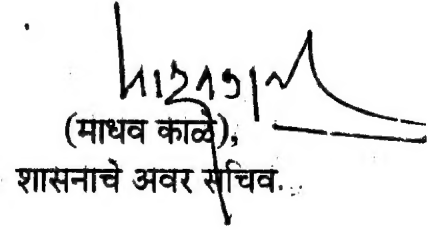 (माधव काळे),
शासनाचे अवर सचिव.